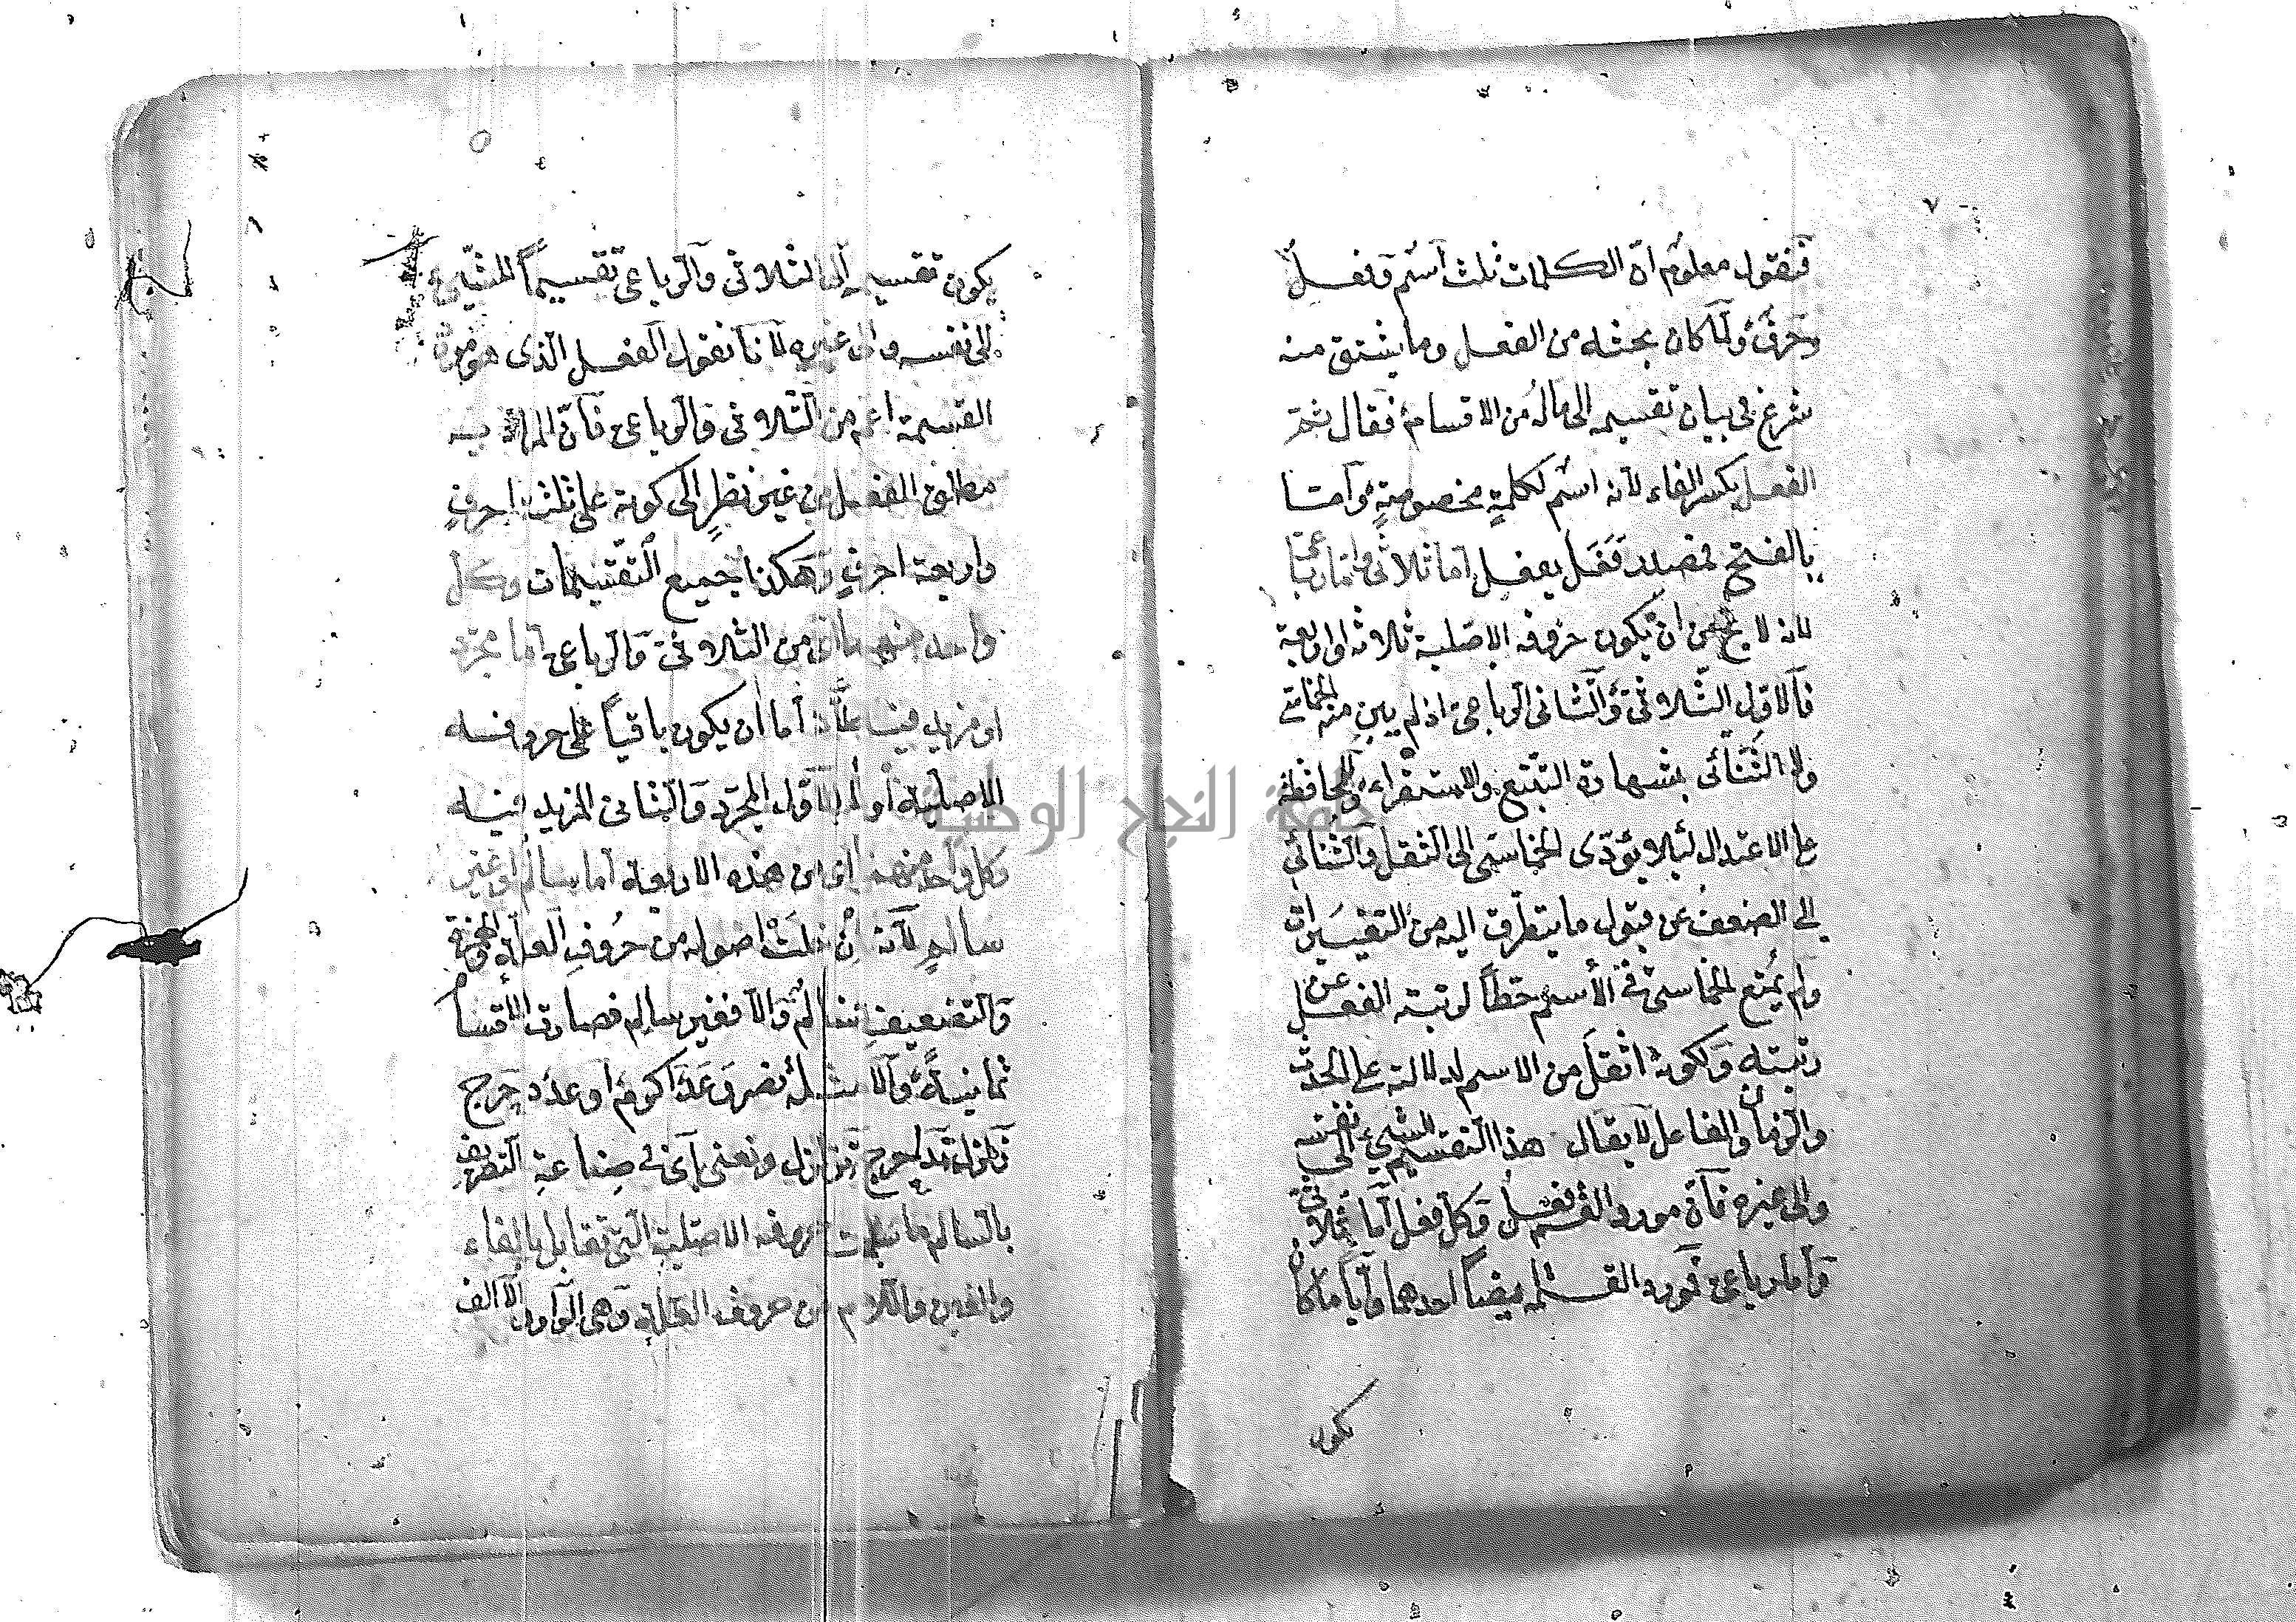 ٧
فنقول معلوم ان الكلمات ثلث اسم وفعل
وحرف ولما كان بحثه من الفعل وما يشتق منه
شرع في بيان تقسيمه الى ماله من الاقسام فقال ثم
الفعل بكسر الفاء لانه اسم لكلمة مخصوصة وأما
بالفتح فمصدر فعل يفعل اما ثلاثي واما رباعي
لانه لا يخ من ان يكون حروفه الاصلية ثلاثة او اربعة
فالاول الثلاثي والثاني الرباعي اذ لم يبن منه الخماسي
ولا الثنائي بشهادة التتبع والاستقراء وللمحافظة
على الاعتدال لئلا يؤدي الخماسي الى الثقل والثنائي
الى الضعف عن قبول ما يتطرق اليه من التغييرات
ولم يمنع الخماسي في الاسم حطاً لرتبة الفعل عن
رتبته ولكونه اثقل من الاسم لدلالته على الحدث
والزمان والفاعل لا يقال هذا التقسيم للشيء الى نفسه
والى غيره فان مورد القسم فعل وكل فعل اما ثلاثي
واما رباعي فمورد القسمة ايضاً احدهما وأيا ما كان
يكون
يكون تقسيمه الى الثلاثي والرباعي تقسيماً للشيء
الى نفسه والى غيره لانا نقول الفعل الذي هو مورد
القسمة اعم من الثلاثي والرباعي فان المراد به
مطلق الفعل من غير نظر الى كونه على ثلثة احرف
واربعة احرف وهكذا جميع التقسيمات وكل
واحد منهما اى من الثلاثي والرباعي اما مجرد
او مزيد فيه لانه اما ان يكون باقياً على حروفه
الاصلية أو لا فالاول المجرد والثاني المزيد فيه
وكل واحد منها اى من هذه الاربعة اما سالم او غير
سالم لانه ان خلت اصوله من حروف العلة والهمزة
والتضعيف فسالم والا فغير سالم فصارت الاقسام
ثمانية والامثلة نصر وعد اكرم اوعد دحرج
زلزل تدحرج تزلزل ونعنى اى في صناعة التصريف
بالسالم ما سلمت حروفه الاصلية التي تقابل بالفاء
والعين واللام من حروف العلة وهى الواو والالف
جامعة النجاح الوطنية